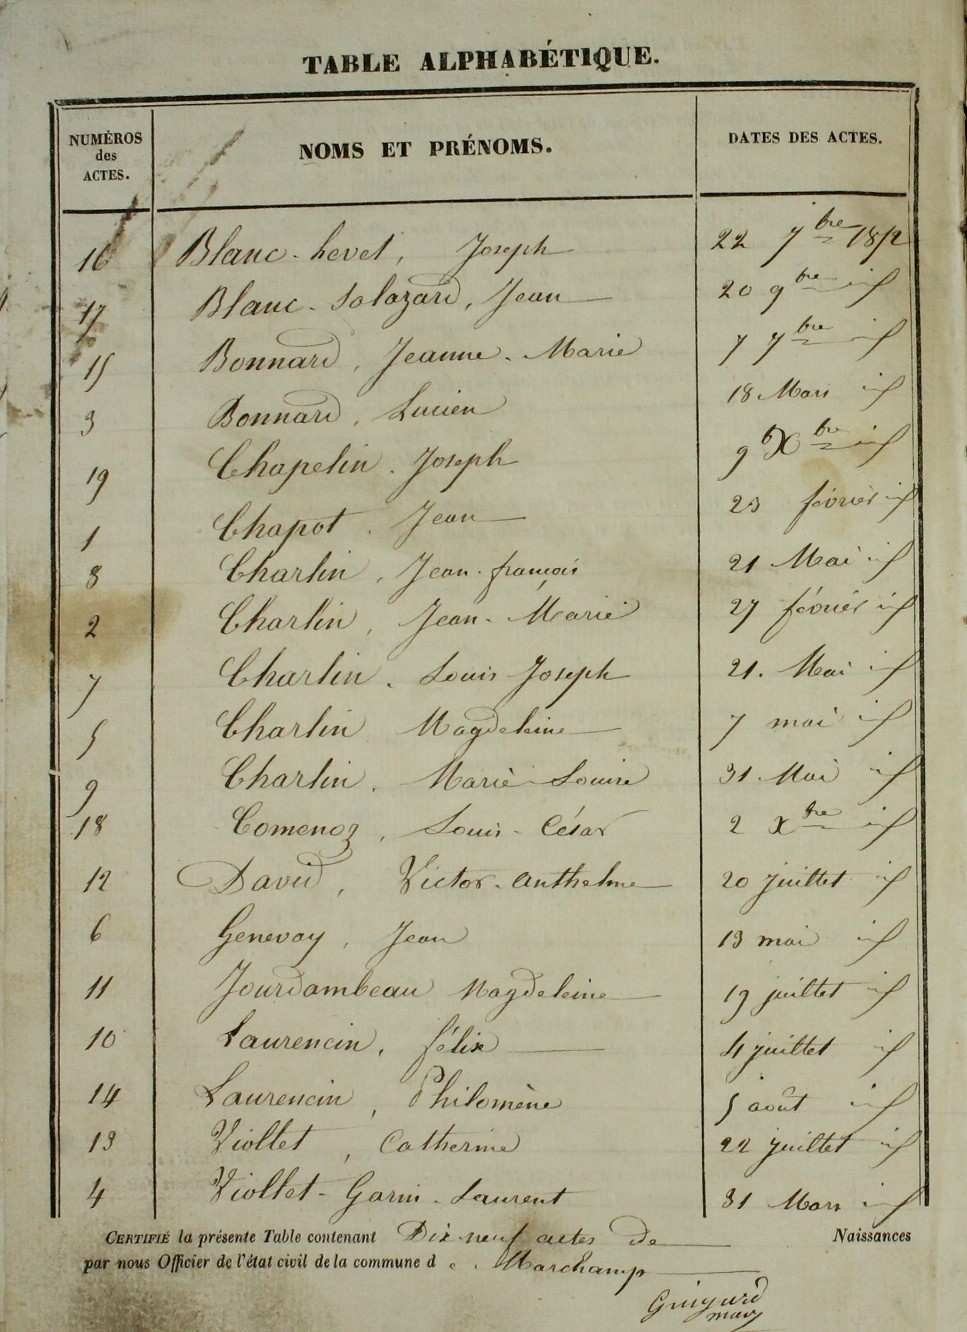 TABLE ALPHABÉTIQUE.
NUMÉROS des ACTES. NOMS ET PRÉNOMS. DATES DES ACTES.
16 Blanc-hevet, Joseph 22 7bre
17 Blanc-Solozard, Jean 20 9bre id
15 Bonnard, Jeanne-Marie 7 7bre id
3 Bonnard, Lucien 18 Mars id
19 Chapelin. Joseph 9 Xbre id
1 Chapot. Jean 23 février id
8 Charlin, Jean-françois 21 Mai id
2 Charlin, Jean-Marie 27 février id
7 Charlin. Louis Joseph 21. Mai id
5 Charlin Magdeleine 7 mai id
9 Charlin, Marie Louise 31 Mai id
18 Comenoz, Louis-César 2 Xbre id
12 David, Victor-anthelme 20 juillet id
6 Genevay, Jean 13 mai id
11 Jourdambeau Magdeleine 19 juillet id
10 Laurencin, félix 4 juillet id
14 Laurencin, Philomène 5 août id
13 Viollet, Catherine 22 juillet id
4 Viollet-Garin-Laurent 31 Mars id
CERTIFIÉ la présente Table contenant Dix neuf actes de Naissances
par nous Officier de l'état civil de la commune de Marchamp
Guigard